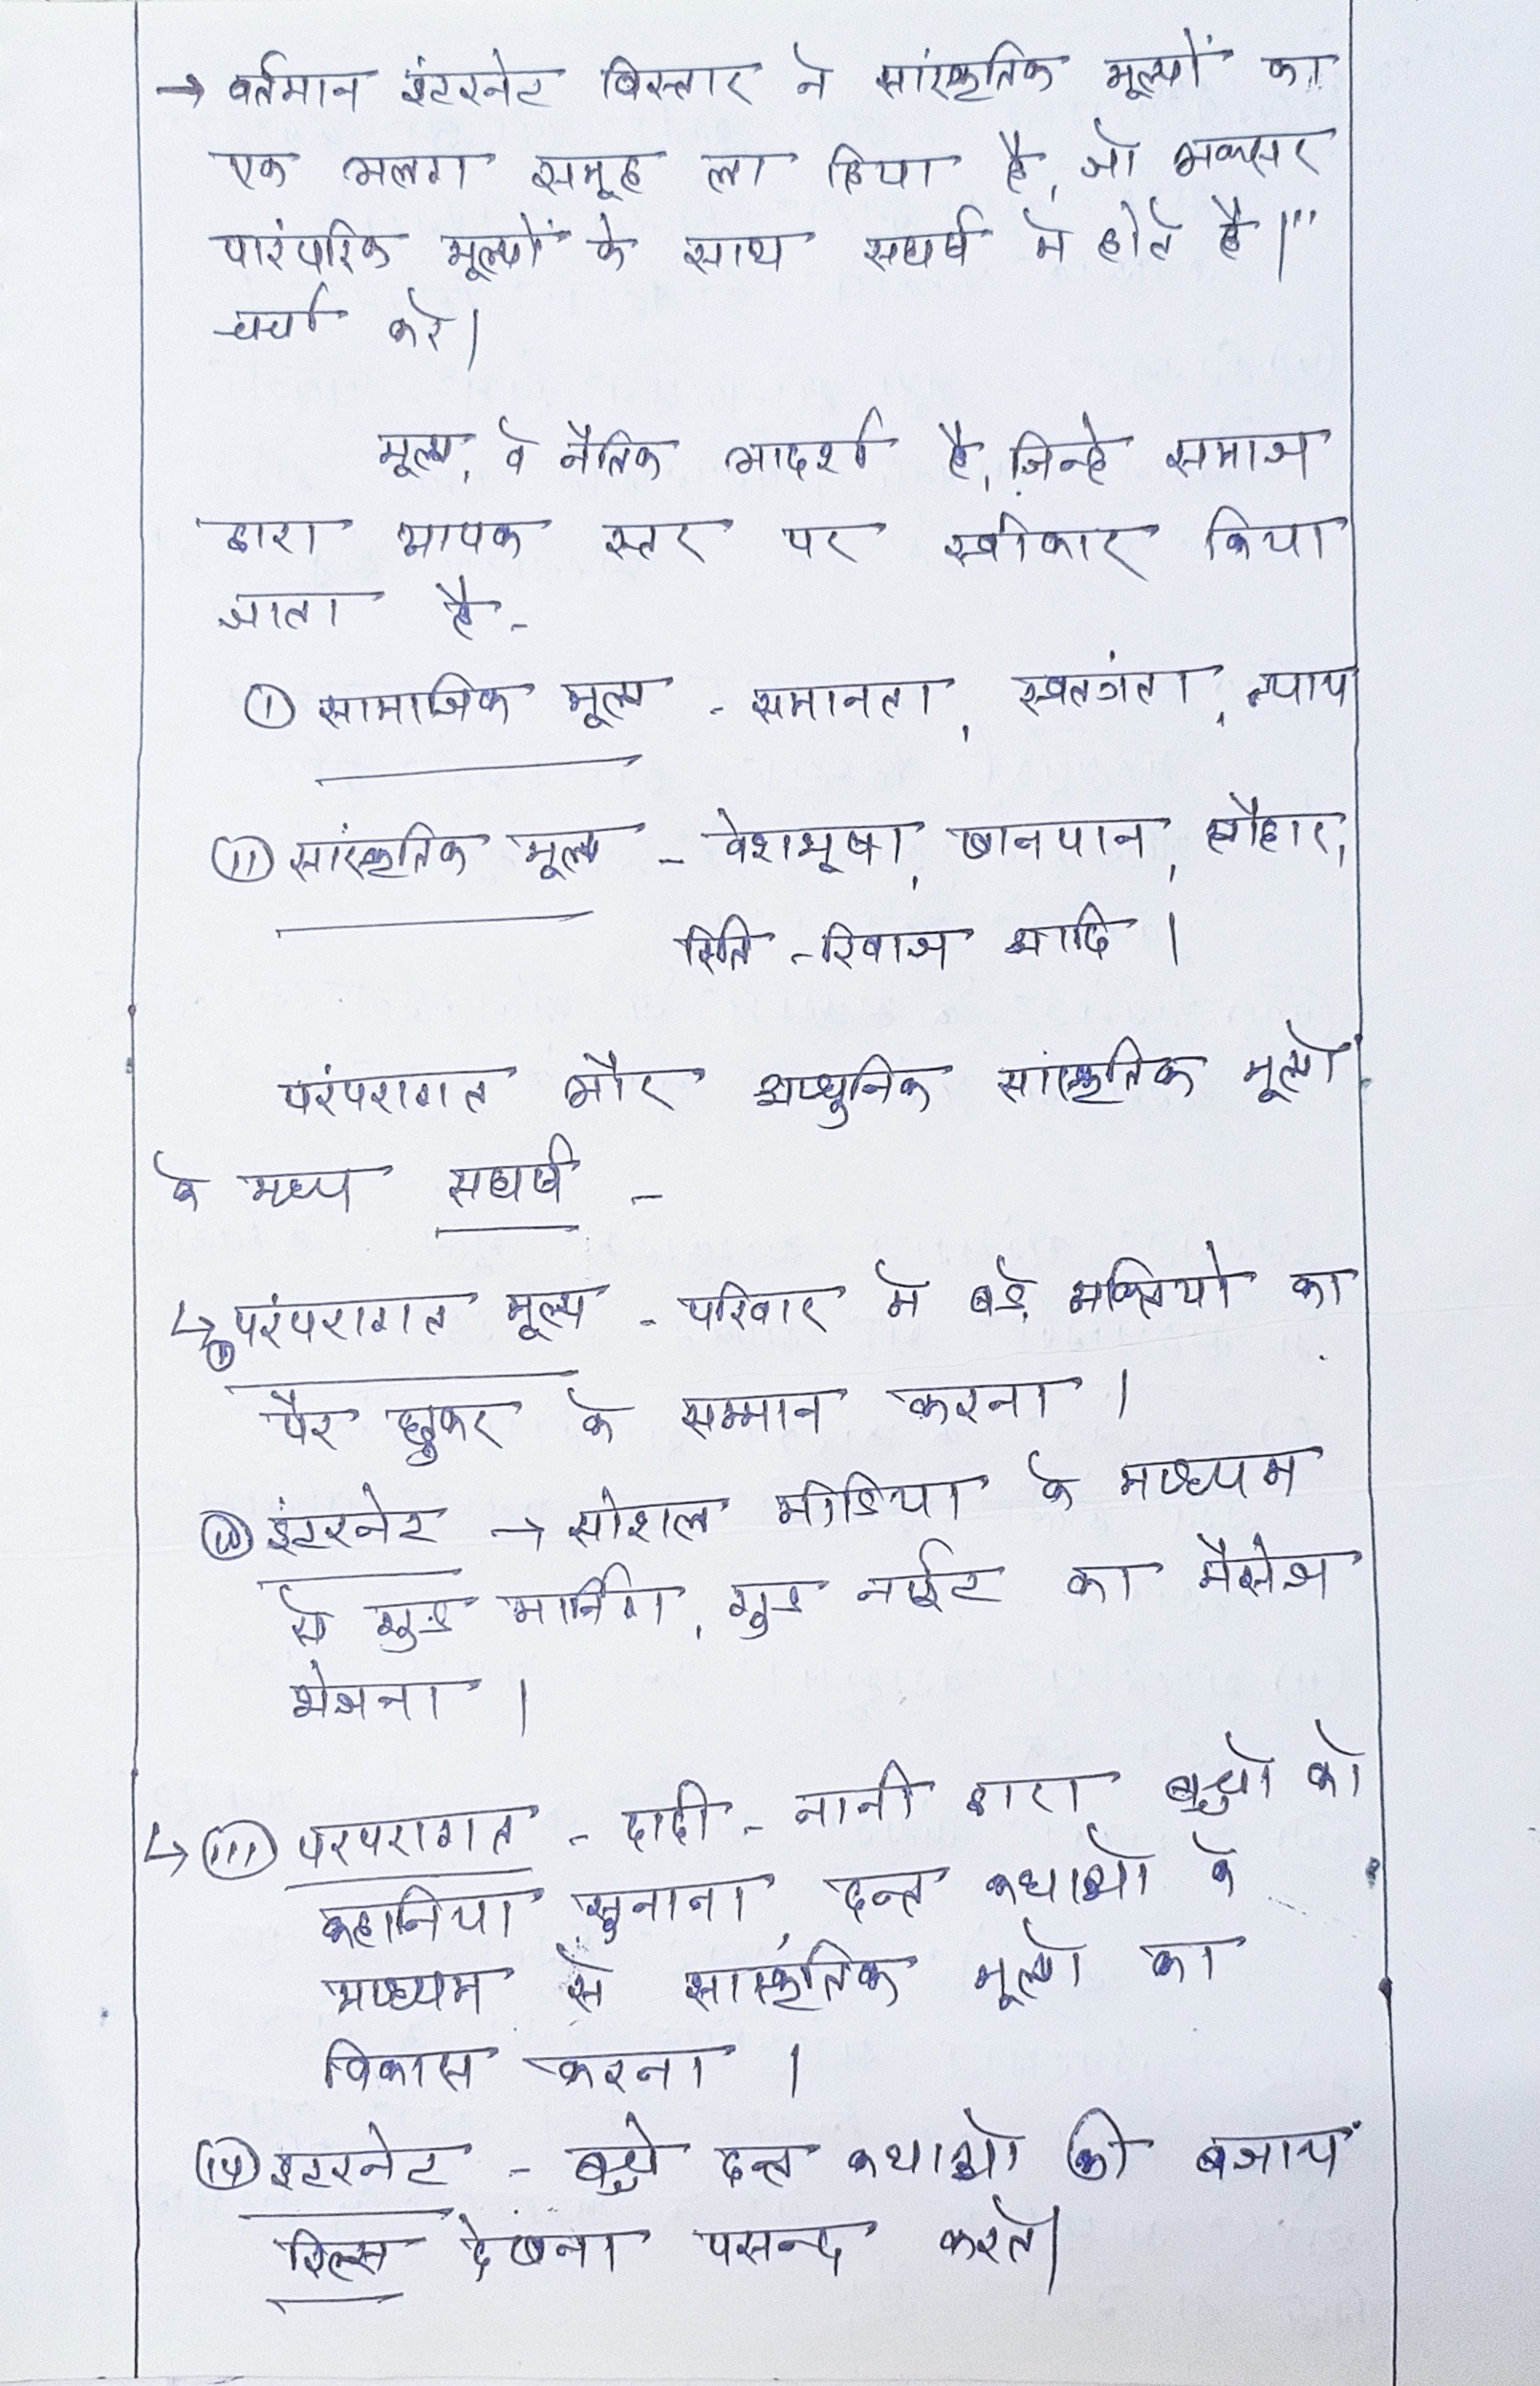 → वर्तमान इंटरनेट विस्तार ने सांस्कृतिक मूल्यों का
एक अलग समूह ला दिया है, जो अक्सर
पारंपरिक मूल्यों के साथ सघर्ष मे होते है।"
चर्चा करे।
मूल्य, वे नैतिक आदर्श है, जिन्हे समाज
द्वारा व्यापक स्तर पर स्वीकार किया
जाता है -
(i) सामाजिक मूल्य - समानता, स्वतत्रंता, न्याय
(ii) सांस्कृतिक मूल्य - वेशभूषा, खानपान, त्यौहार,
रिति - रिवाज आदि ।
परंपरागत और आधुनिक सांस्कृतिक मूल्यों
के मध्य सघर्ष -
↳ (i) परंपरागत मूल्य - परिवार मे बडे व्यक्तियो का
पैर छुकर के सम्मान करना ।
(ii) इंटरनेट → सोशल मीडिया के माध्यम
से गुड मार्निग, गुड नाईट का मैसेज
भेजना ।
↳ (iii) परपरागत - दादी - नानी द्वारा बच्चो को
कहानिया सुनाना, दन्त कथाओ के
माध्यम से सास्कृतिक मूल्यो का
विकास करना ।
(iv) इटरनेट - बच्चे दन्त कथाओ की बजाय
रिल्स देखना पसन्द करते।